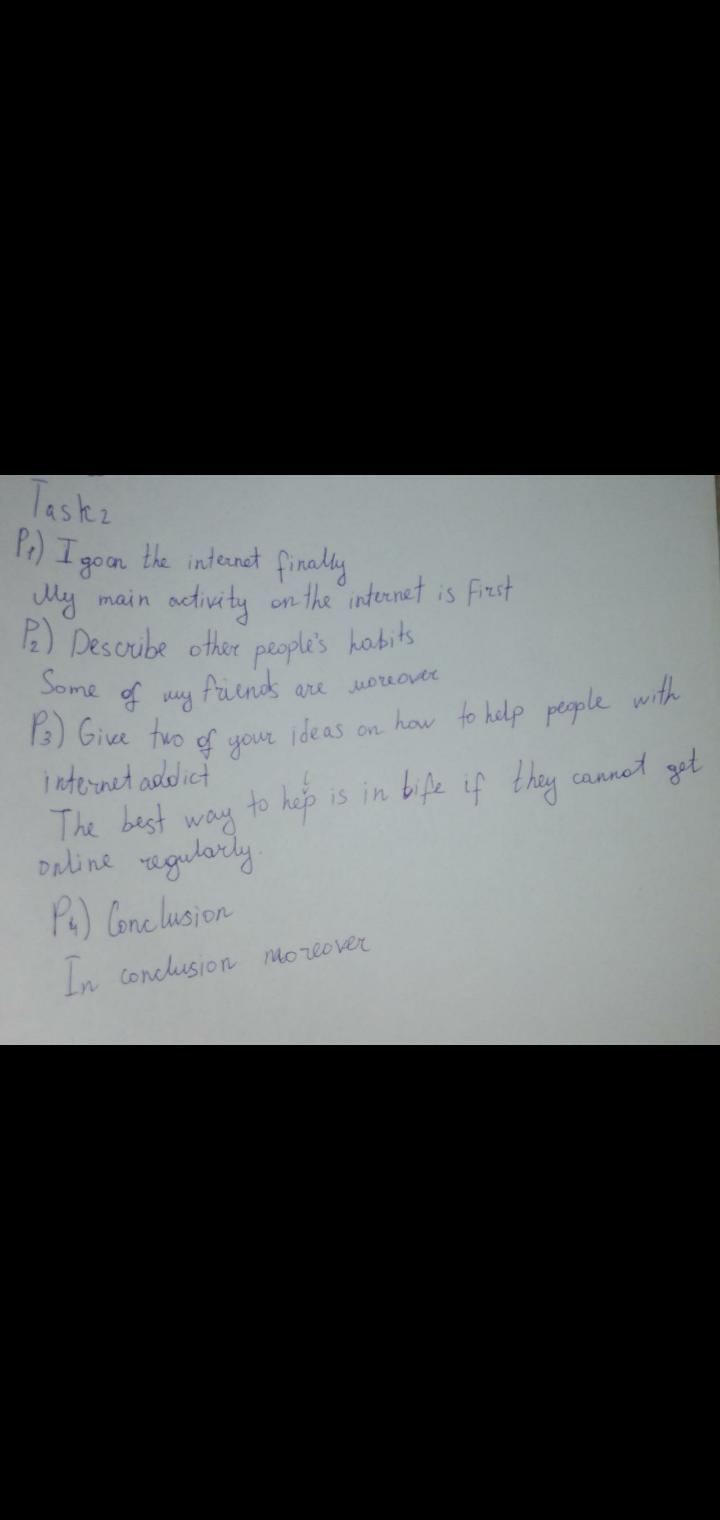 Task 2
P1) I go on the internet finally
My main activity on the internet is First
P2) Describe other people's habits
Some of my friends are moreover
P3) Give two of your ideas on how to help people with
internet addict
The best way to help is in life if they cannot get
online regularly.
P4) Conclusion
In conclusion moreover